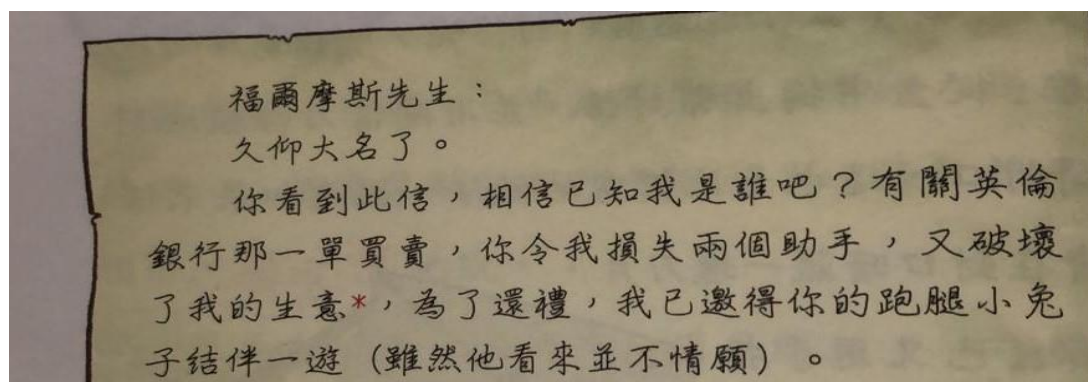 福爾摩斯先生：
久仰大名了。
你看到此信，相信已知我是誰吧？有關英倫
銀行那一單買賣，你令我損失兩個助手，又破壞
了我的生意*，為了還禮，我已邀得你的跑腿小兔
子结伴一遊（雖然他看來並不情願）。